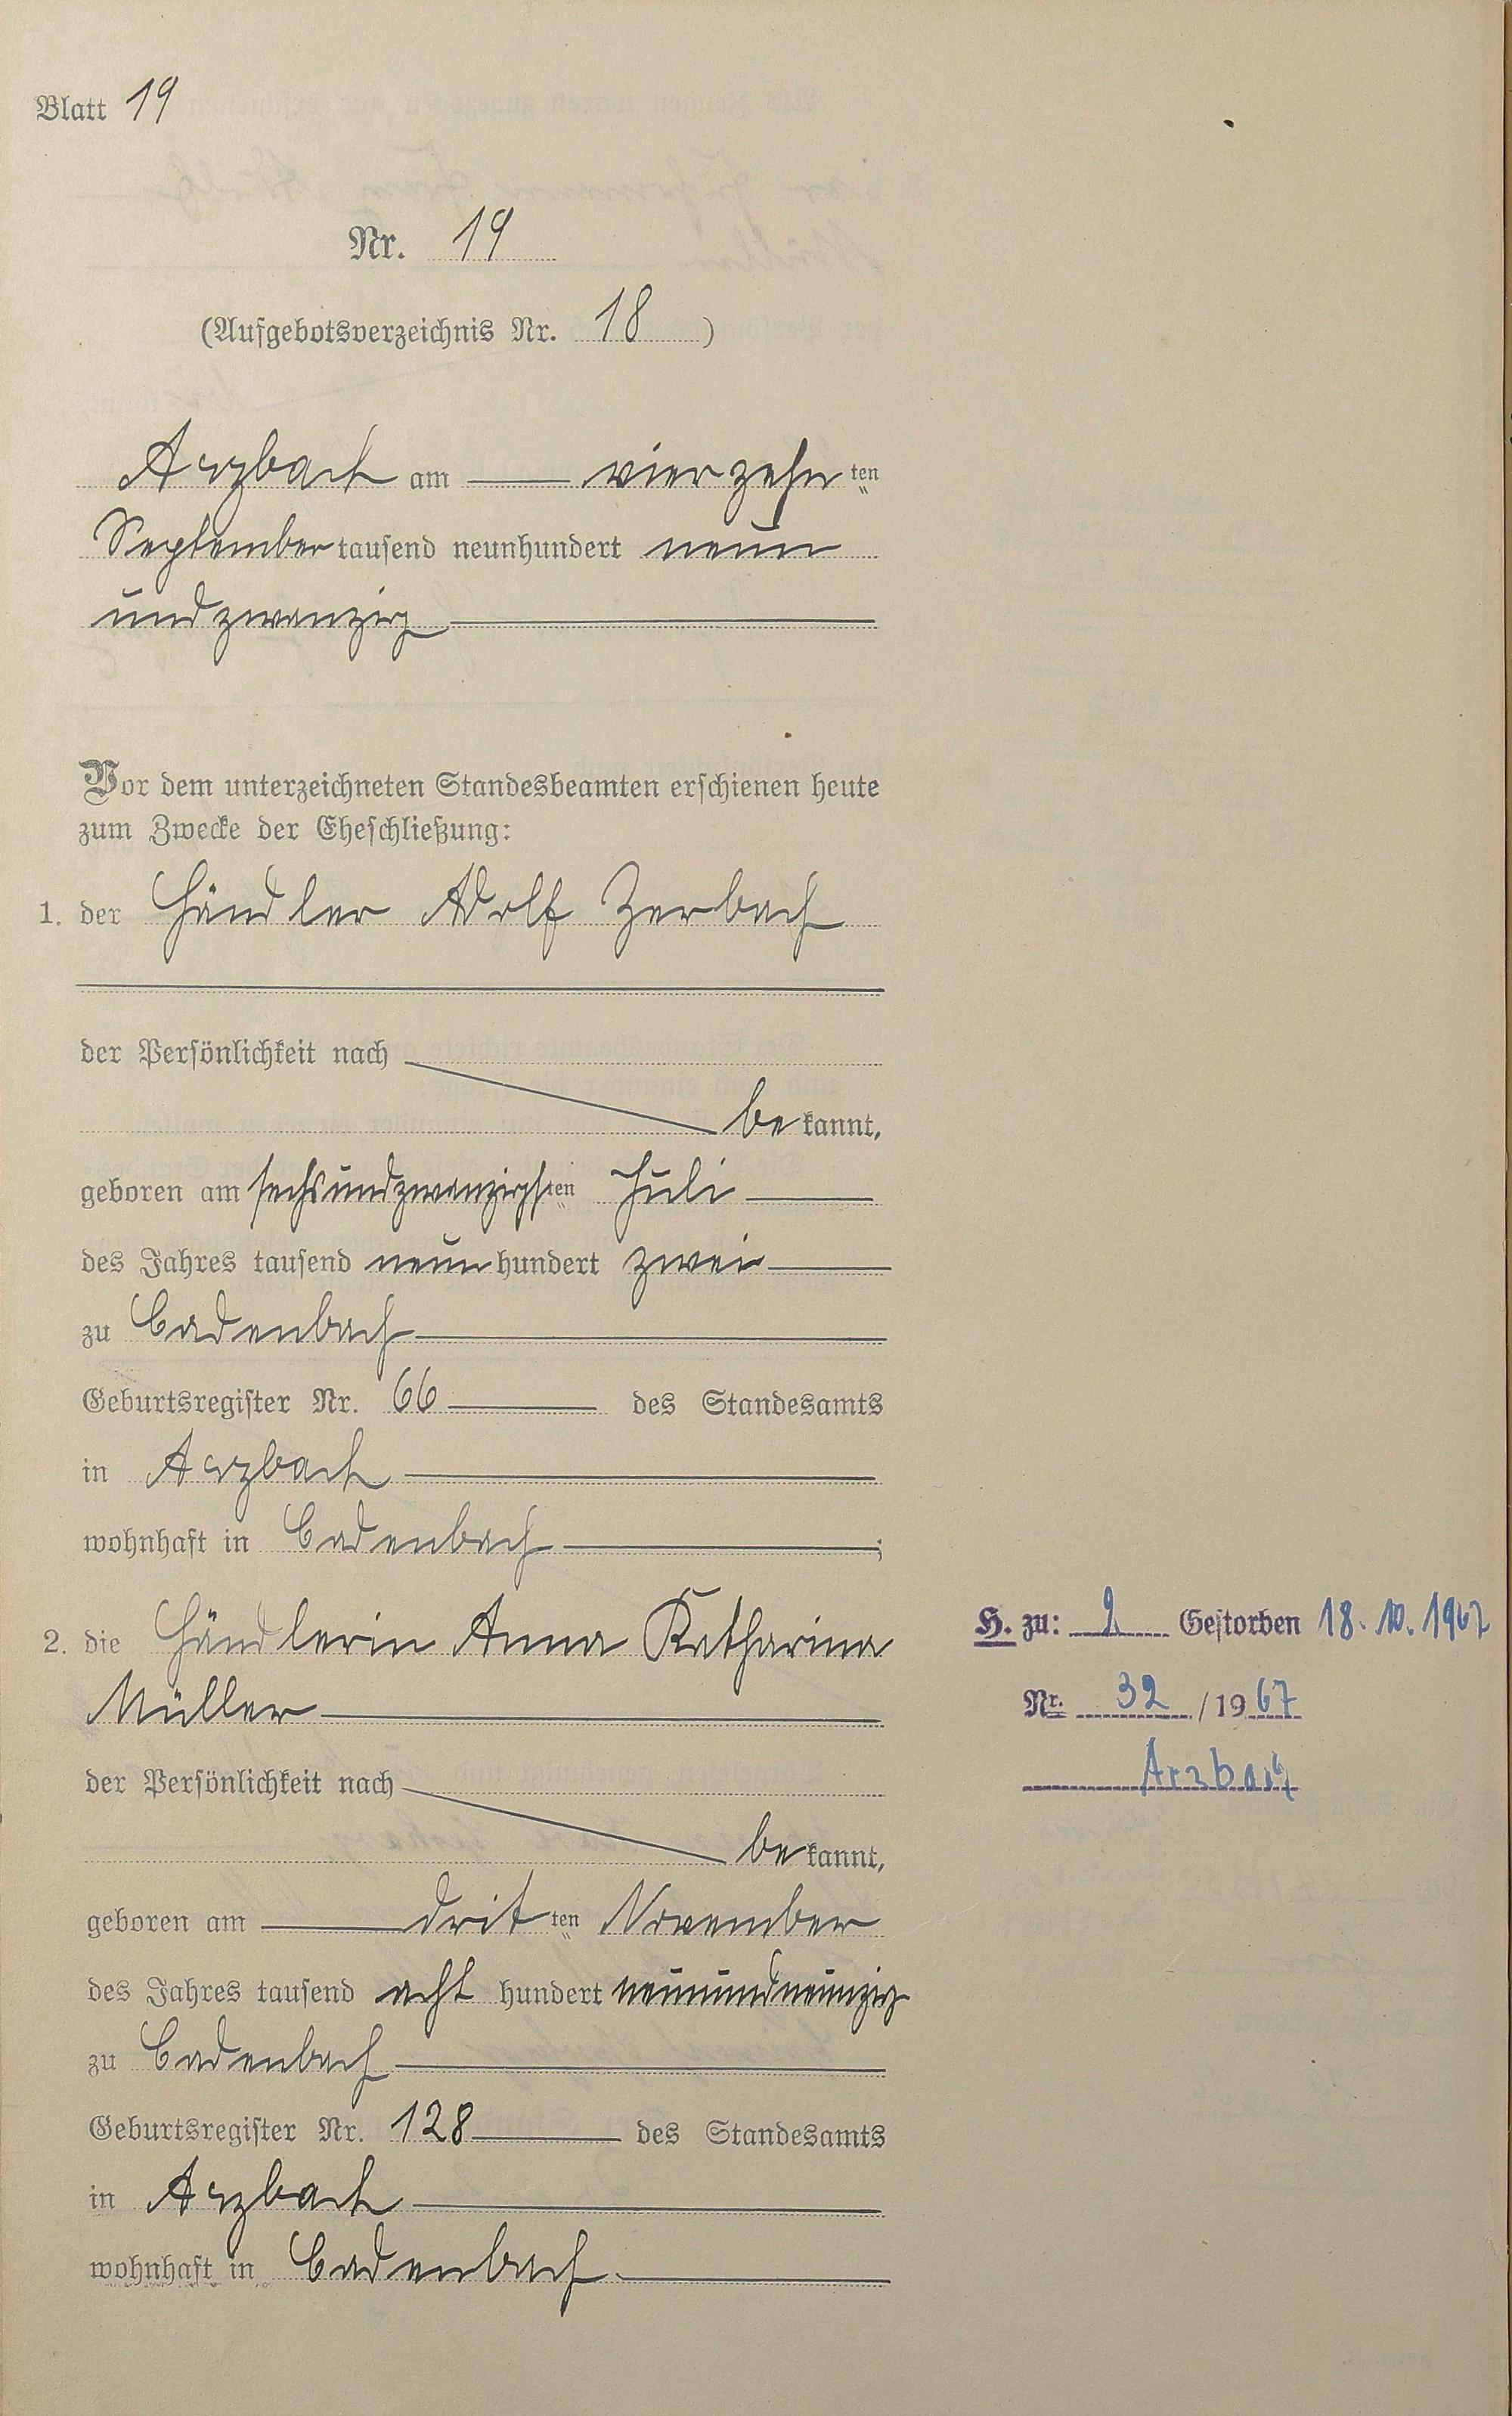 Blatt 19
Nr. 19
(Aufgebotsverzeichnis Nr. 18)
Arzbach am vierzehn ten
September tausend neunhundert neun
undzwanzig
Vor dem unterzeichneten Standesbeamten erschienen heute
zum Zwecke der Eheschließung:
1. der Händler Adolf Zerbach
der Persönlichkeit nach
be kannt,
geboren am sechsundzwanzigsten Juli
des Jahres tausend neun hundert zwei
zu Cadenbach
Geburtsregister Nr. 66 des Standesamts
in Arzbach
wohnhaft in Cadenbach;
2. die Händlerin Anna Katharina
Müller
der Persönlichkeit nach
be kannt,
geboren am drit ten November
des Jahres tausend acht hundert neunundneunzig
zu Cadenbach
Geburtsregister Nr. 128 des Standesamts
in Arzbach
wohnhaft in Cadenbach
H. zu: 2 Gestorben 18.10.1967
Nr. 32 / 1967
Arzbach